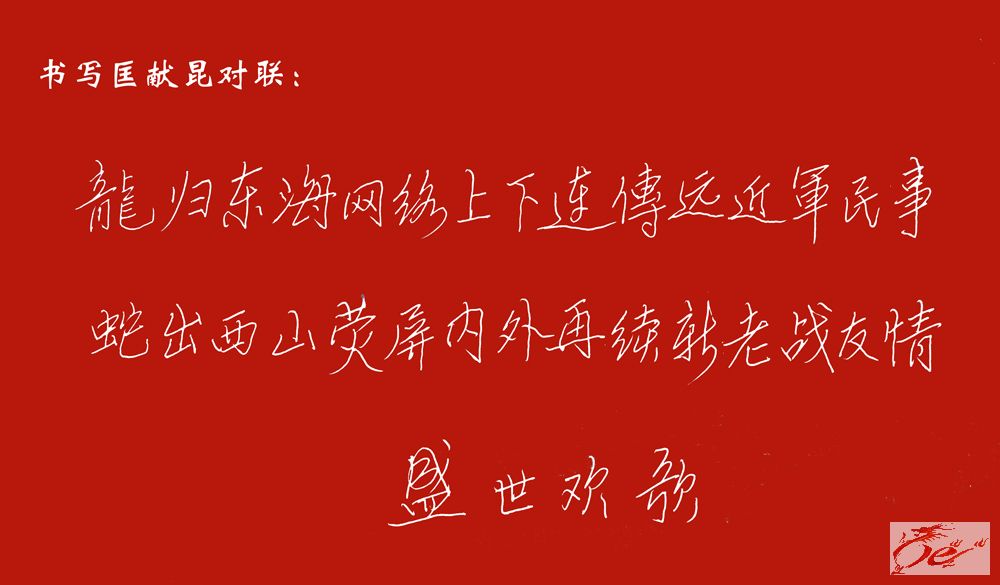 书写匡献昆对联：
龍归东海网络上下连傳远近軍民事
蛇出西山荧屏内外再续新老战友情
盛世欢歌